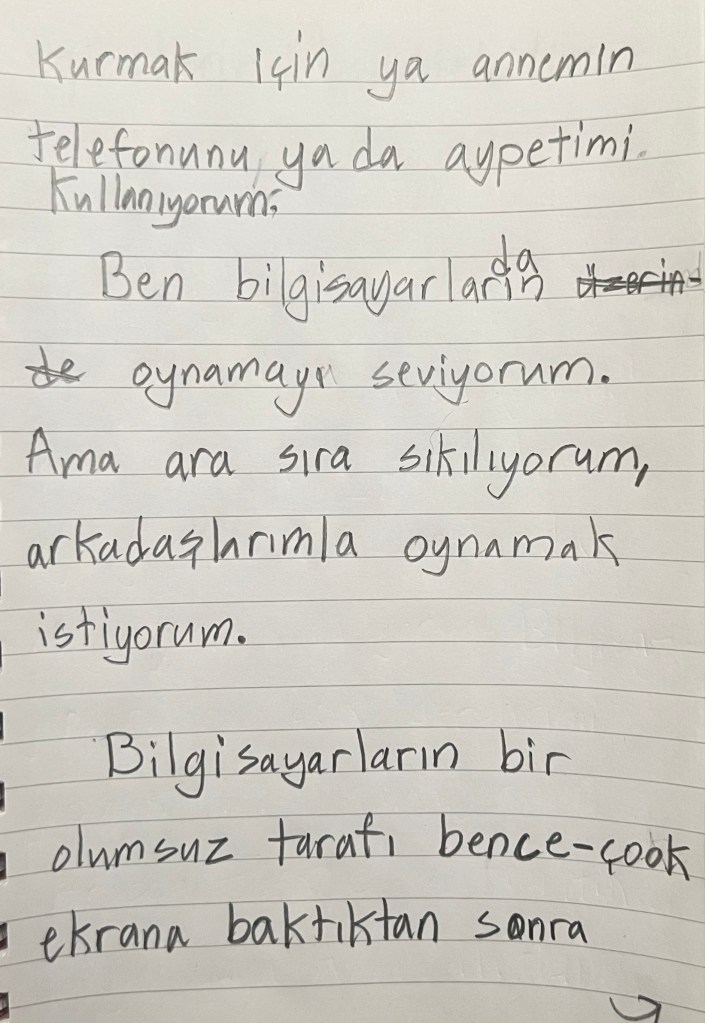 Kurmak için ya annemin
telefonunu, ya da aypetimi.
Kullanıyorum;
Ben bilgisayarlarında üzerin-
de oynamayı seviyorum.
Ama ara sıra sıkılıyorum,
arkadaşlarımla oynamak
istiyorum.
Bilgisayarların bir
olumsuz tarafı bence-çook
ekrana baktıktan sonra